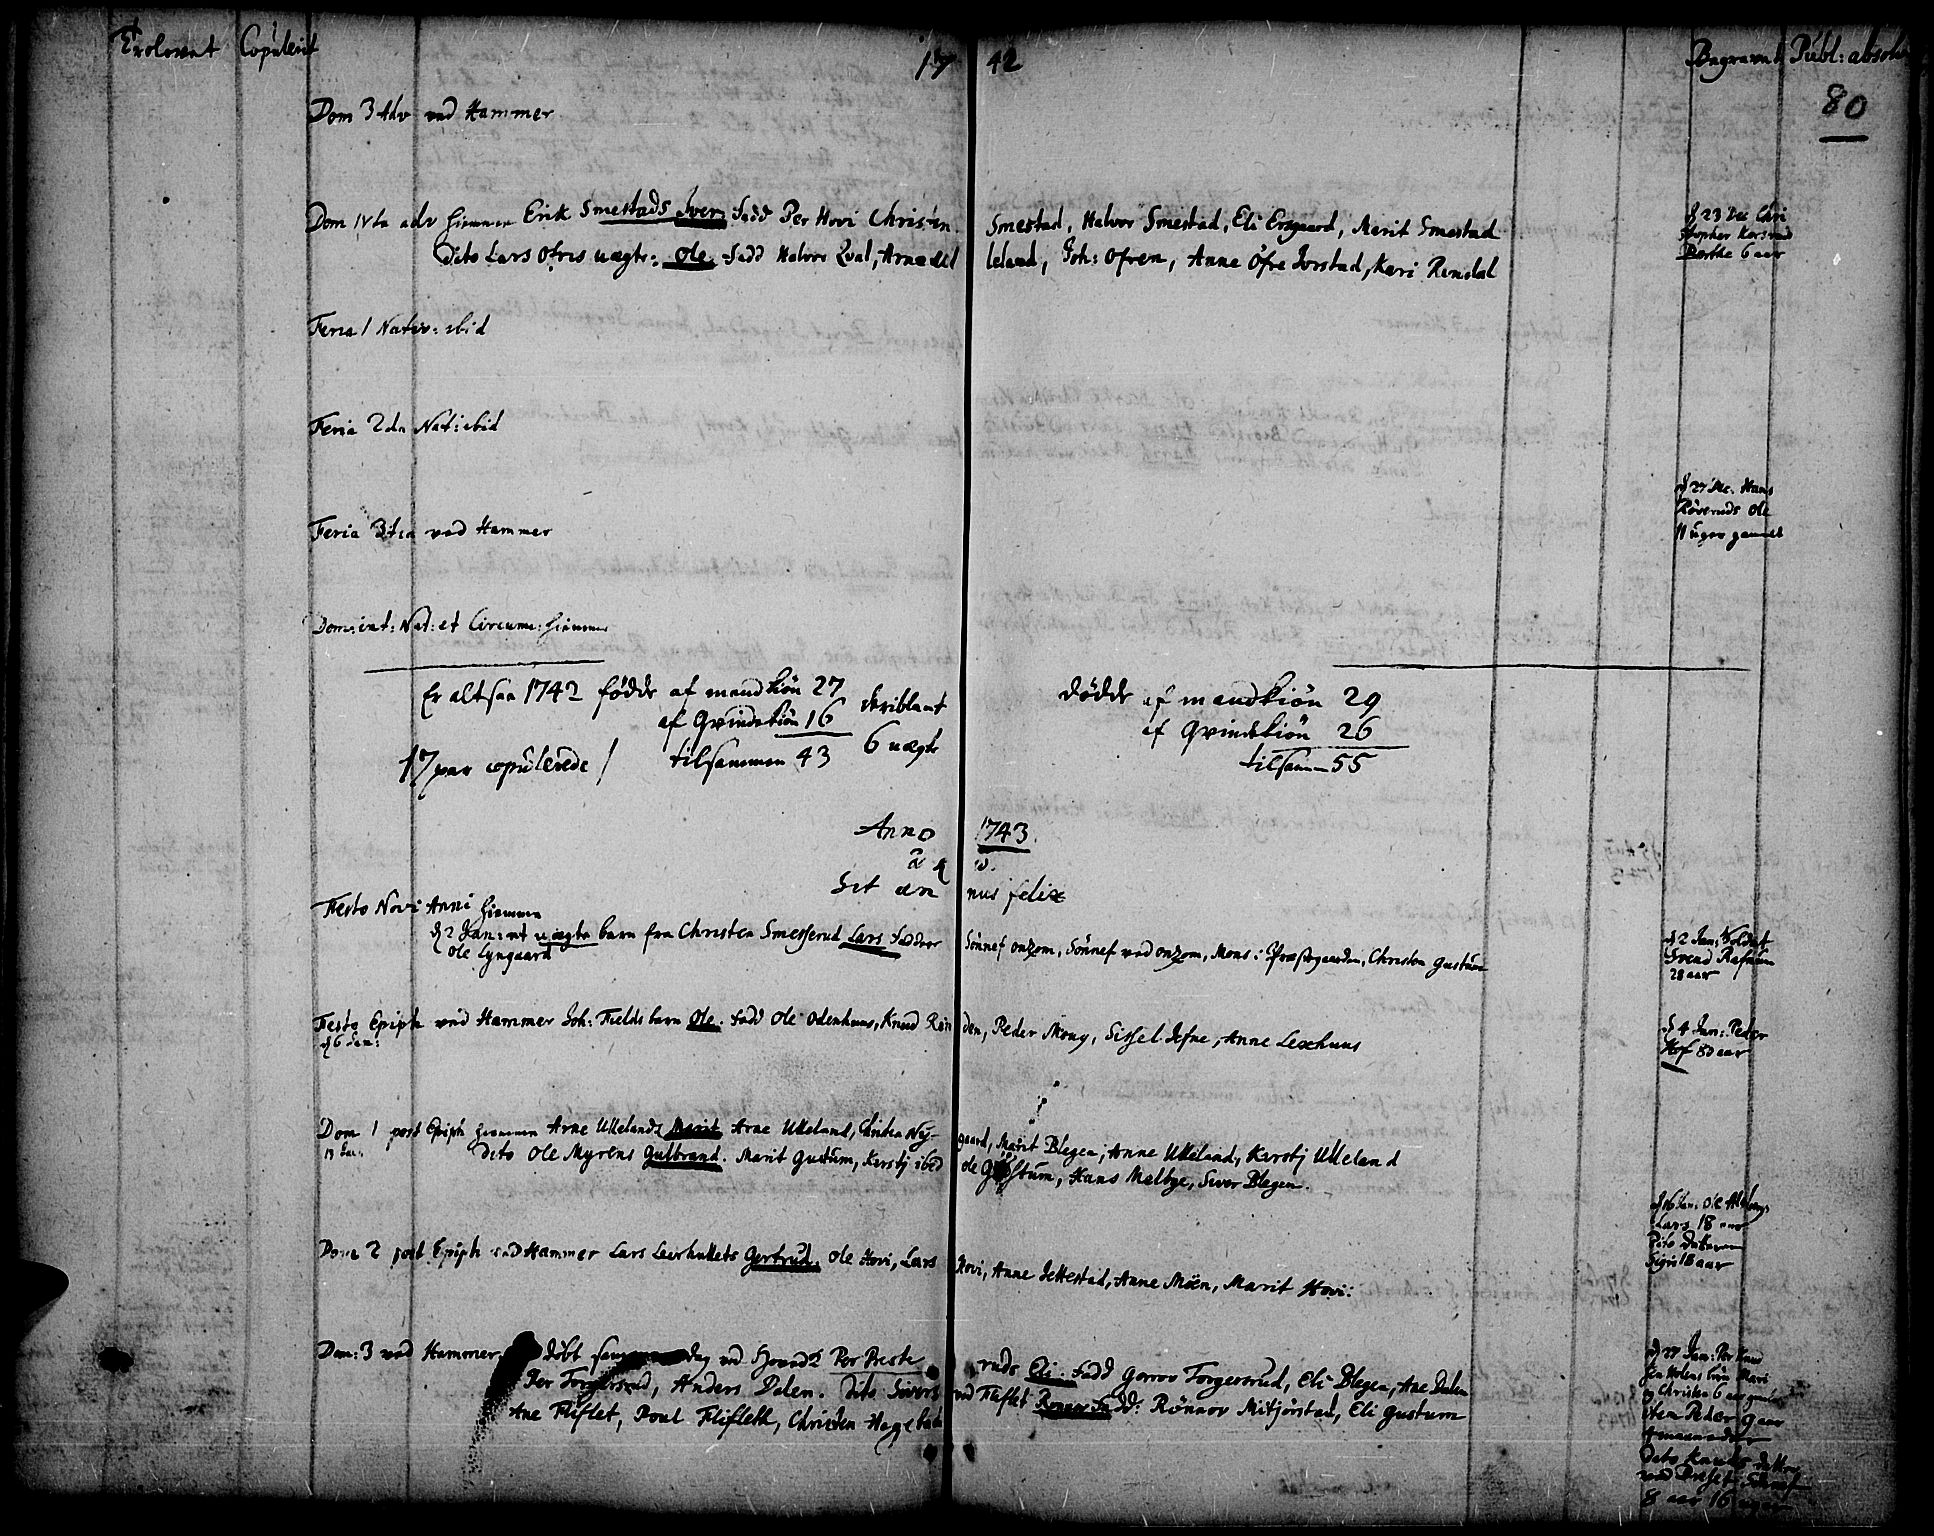 Trolovet Copulent 1742 Begravet Publ: absol
80
Dom 3 Adv ved Hammer
Dom IVta adv hiemme Erik Smestads Iver Fadd Per Hovi Christen Smestad, Halvor Smestad, Eli Ersgaard, Merit Smestad
Dito Lars Ofris uægte: Ole Fadd Halvor Qval, Arne Ulleland, Joh: Ofren, Anne Öfre Jorstad, Kari Remdal
d 23 Dec Chri
stopher
Berthe 6 aar
Feria 1 Nativ: ibid
Feria 2da Nat: ibid
Feria 3tia ved Hammer
d 27 Dec. Hans
Röveruds Ole
11 uger gammel
Dom: int: Nat: et Circumc: hiemme
Er altsaa 1742 fødde af mandkiön 27
af Qvindekiön 16
tilsammen 43
iblant
6 uægte
17 par copulerede /
dödde af mandkiön 29
af Qvindekiön 26
tilsamm 55
Anno 1743
α ω
Sit annus felix
Festo Novi Anni hiemme
d 2 Jan: et uægte barn fra Christen Smesserud Lars Faddere Sönnef onzom, Sönnef ved onzom, Mons i Præstgaarden, Christen Gustum
Ole Lyngaard
d 2 Jan: Soldat
Svend Rafnum
28 aar
Festo Epiph ved Hammer Joh: Fields barn Ole. Fadd Ole Odenhuus, Knud Rinden, Peder Mony, Sissel Jefne, Anne Lexhuus
d 6 Jan:
d 4 Jan: Peder
Hof 80 aar
Dom 1 post Epiph hiemme Arne Ullelands Marit Arne Ulleland, Christen Nygaard, Marit Blegen, Anne Ulleland, Kerstj Ulleland
13 Jan:
Dito Ole Myrens Gulbrand. Marit Gustum, Kerstj ibid Ole Gustum, Hans Melbye, Siver Blegen.
d 16 Jan: Ole
Lars 18 aar
Dito datteren
Sigri 18 aar
Dom 2 post Epiph ved Hammer Lars Leerhullets Gertrud. Ole Hovi, Lars Hovi, Anne Jettestad, Anne Möen, Marit Hovi:
Dom: 3 ved Hammer döbt samme dag ved Per Presteruds Eli. Fadd Gorrov Torgersrud, Eli Blegen, Ane Dalen
Per Torgersrud, Anders Dalen. Dito Sivert ved Fliflet Ronnov Fadd: Rönnov Mitjorstad, Eli Gustum
Ane Fliflet, Poul Flifleth, Christen Hagebake
d 27 Jan: Per Knud
Mari
og Christen 6 aar gamle
item Peder 9 aar
Dito Knuds datter
8 aar 16 uger